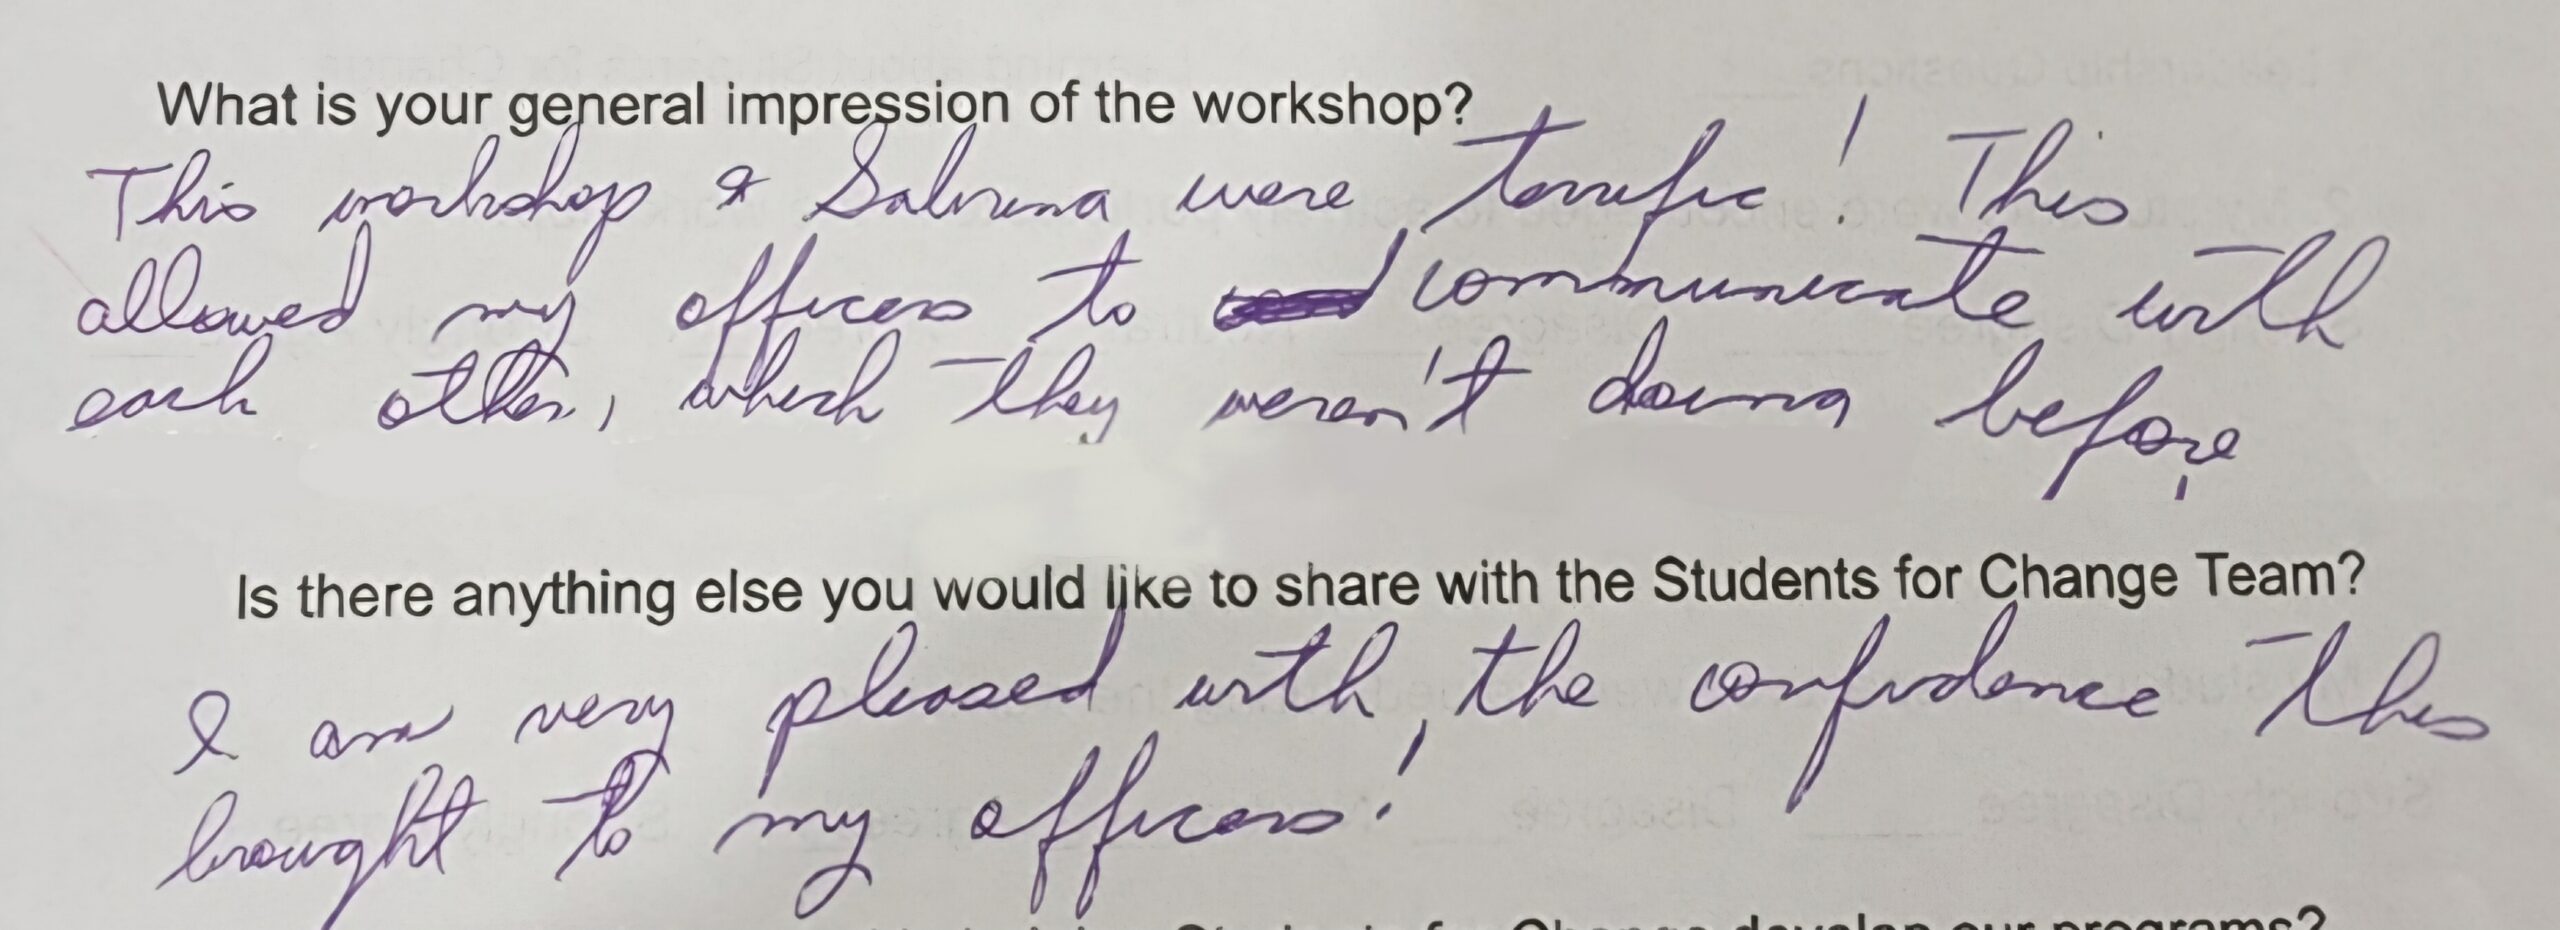 What is your general impression of the workshop?
This workshop & Sabrina were terrific! This
allowed my officers to communicate with
each other, which they weren't doing before
Is there anything else you would like to share with the Students for Change Team?
I am very pleased with the confidence this
brought to my officers!
Students for Change develop our programs?